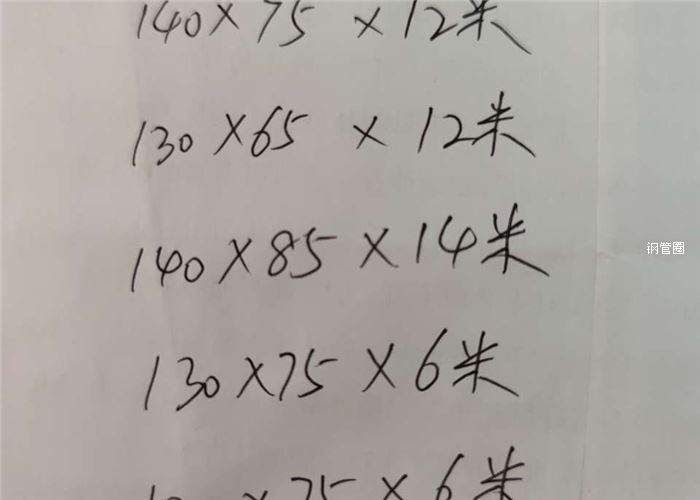 140×75 ×12米
130×65 ×12米
140×85×14米
钢管圈
130×75×6米
×75×6米